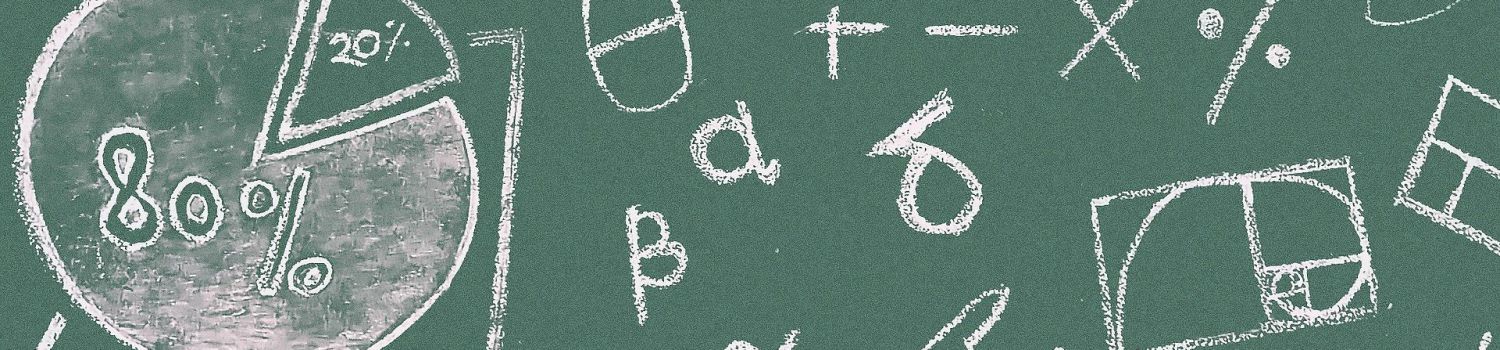 20%
80%
θ
+ − × %
α
δ
β